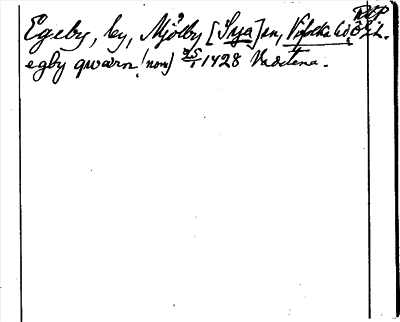 RAP
Egeby, by, Mjölby [Sya] sn, Vifolka hd, Ög.
egby qwærn (nom) 25/1 1428 Vadstena.